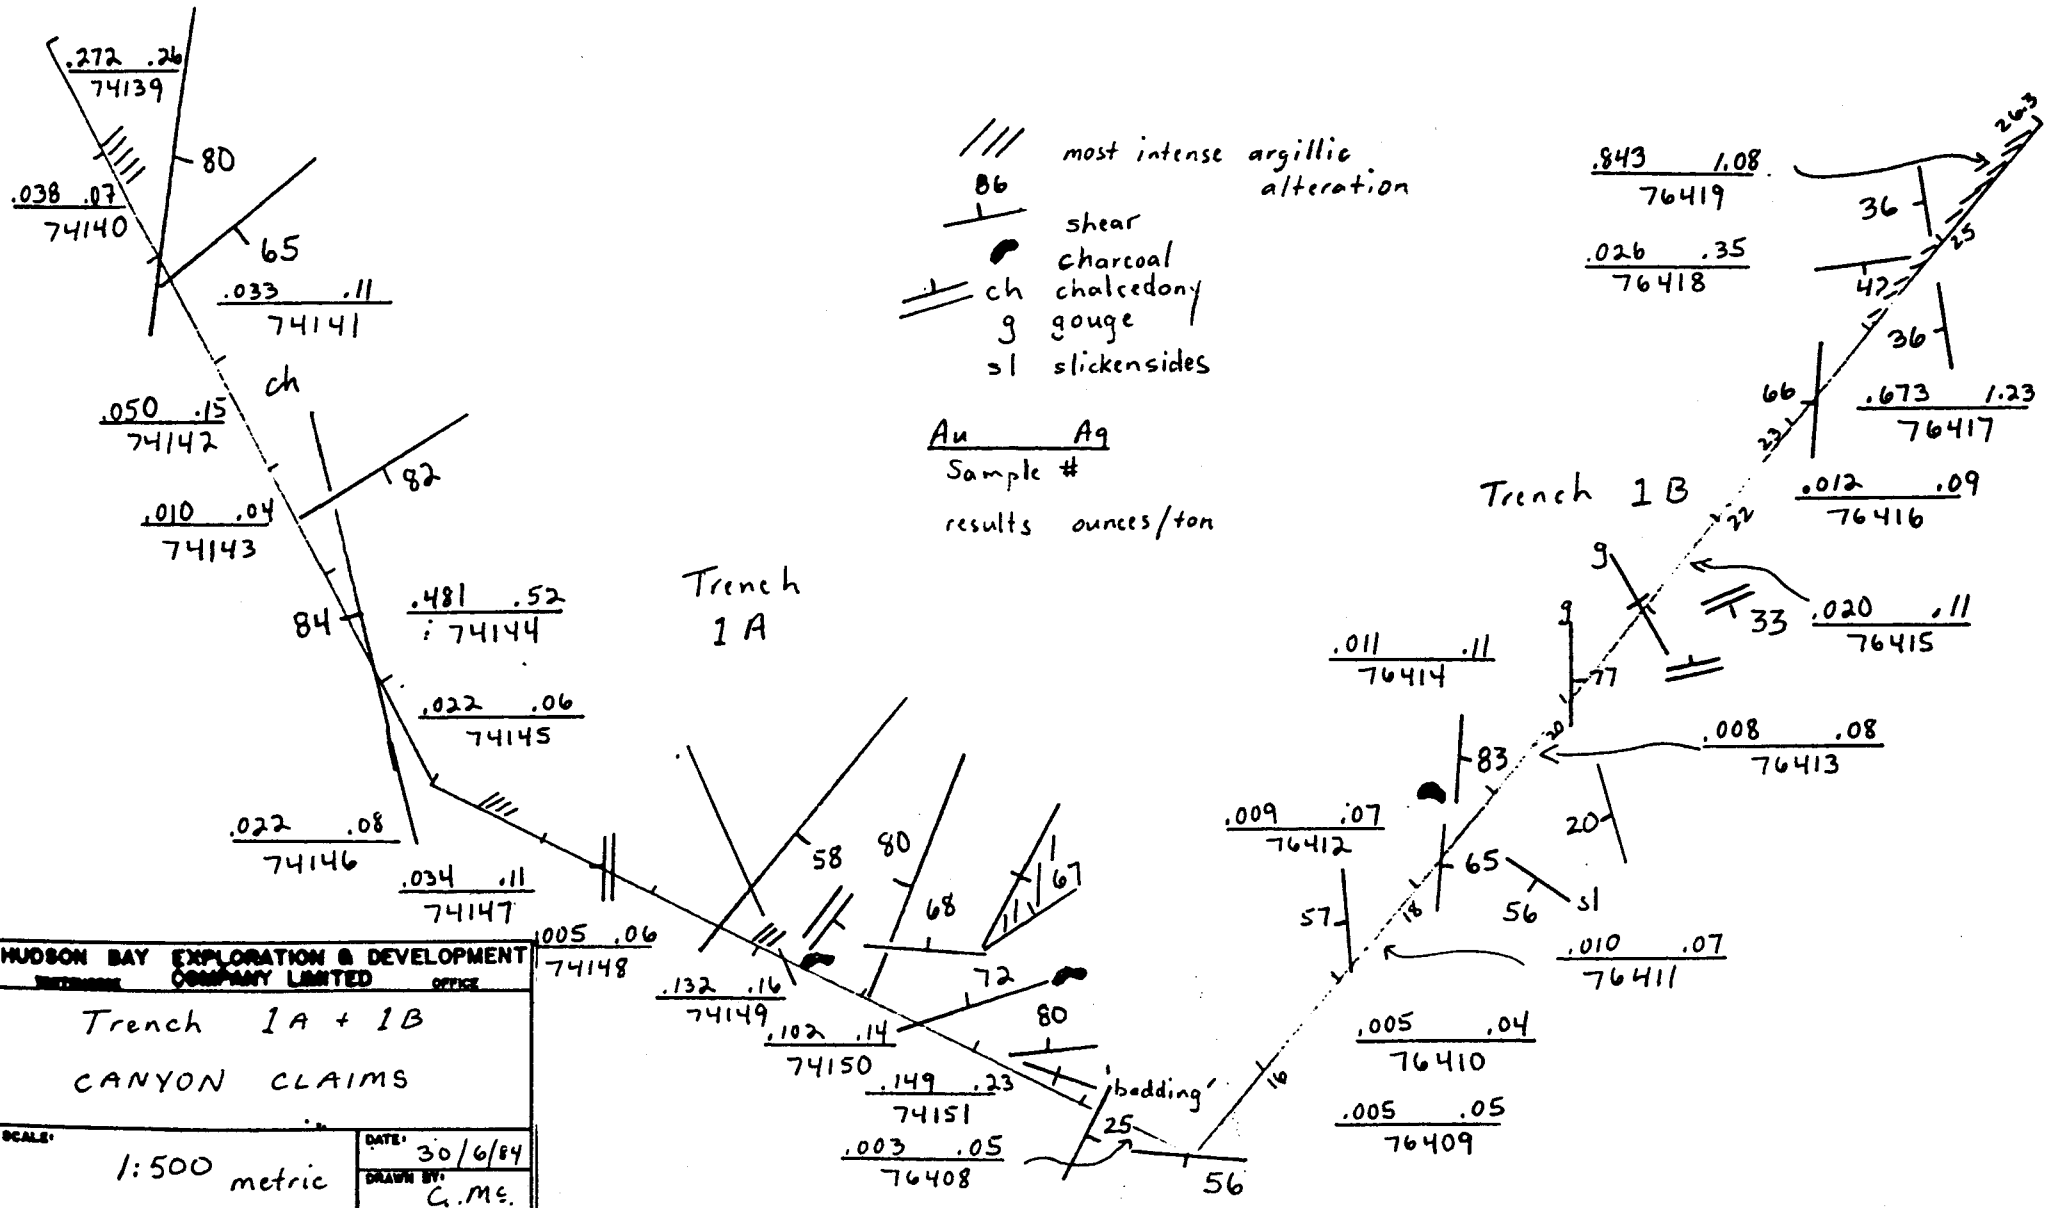 .272 .26
74139
80
.038 .07
74140
65
.033 .11
74141
ch
.050 .15
74142
82
.010 .04
74143
84
.481 .52
74144
.022 .06
74145
.022 .08
74146
.034 .11
74147
.005 .06
74148
.132 .16
74149
.102 .14
74150
.149 .23
74151
.003 .05
76408
Trench
1A
58
80
68
67
72
80
'bedding'
25
56
most intense argillic
alteration
86
shear
charcoal
ch chalcedony
g gouge
sl slickensides
Au Ag
Sample #
results ounces/ton
Trench 1B
26.3
.843 1.08
76419
36
25
.026 .35
76418
42
36
66
.673 1.23
76417
23
.012 .09
76416
22
g
33
.020 .11
76415
g
77
.011 .11
76414
20
.008 .08
76413
83
20
.009 .07
76412
65
56
sl
57
18
.010 .07
76411
.005 .04
76410
16
.005 .05
76409
HUDSON BAY EXPLORATION & DEVELOPMENT
COMPANY LIMITED
OFFICE
Trench 1A + 1B
CANYON CLAIMS
SCALE:
1:500 metric
DATE: 30/6/84
DRAWN BY:
G.Mc.